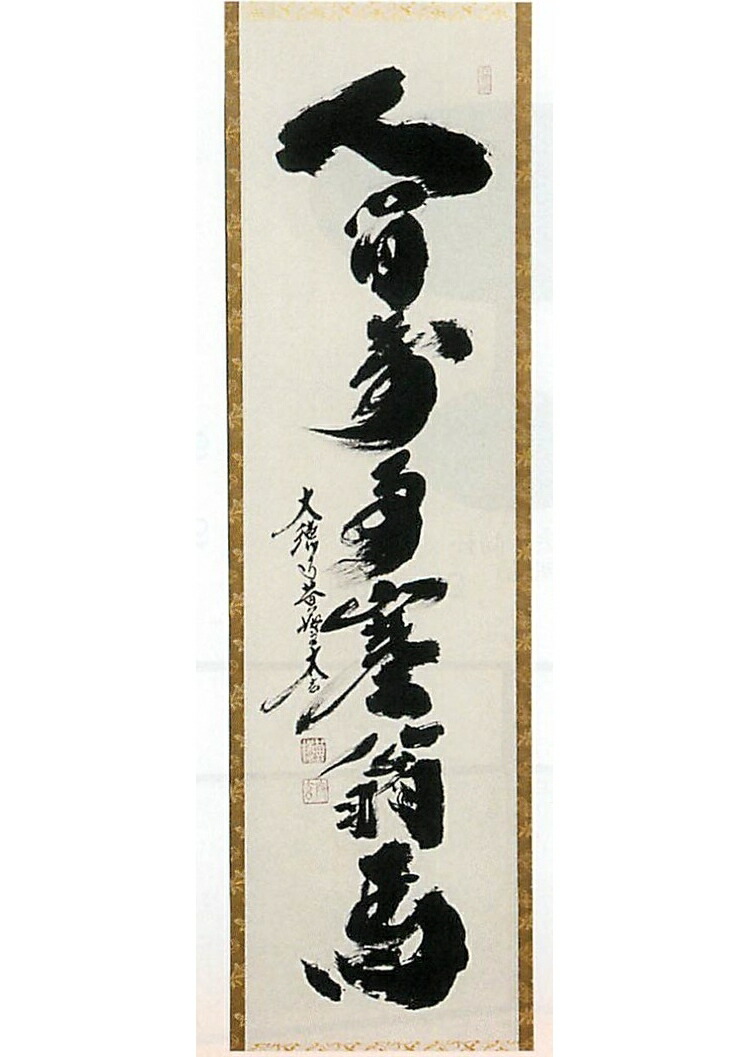 人間萬事塞翁馬
大徳